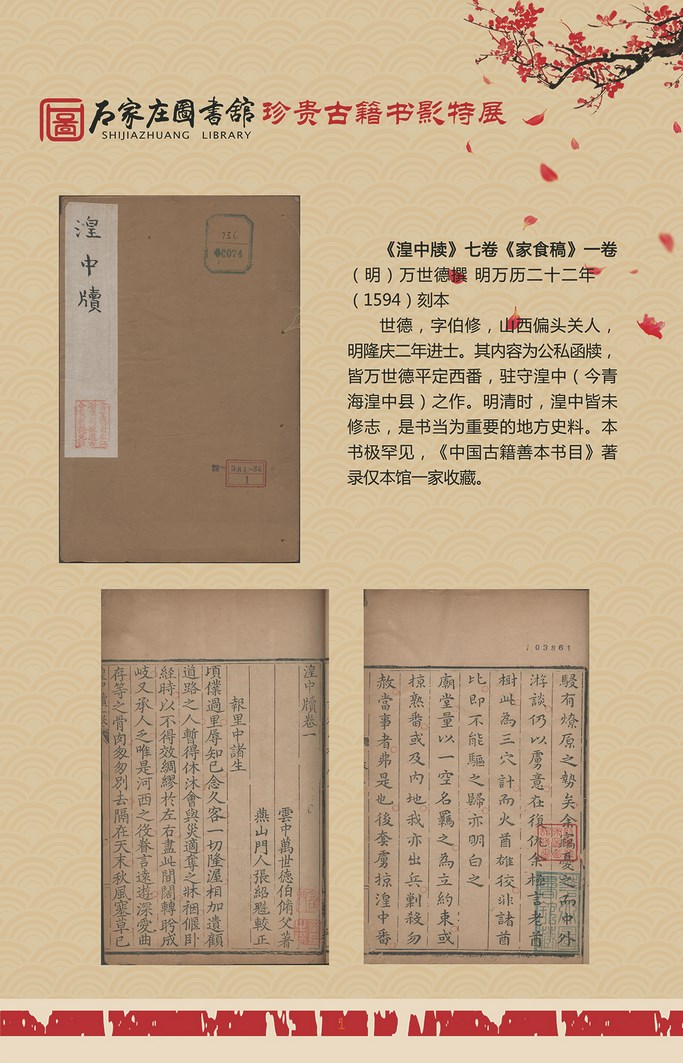 石家庄圖書舘 珍贵古籍书影特展
SHIJIAZHUANG LIBRARY
湟中牘
736
C074
1
《湟中牍》七卷《家食稿》一卷
（明）万世德撰 明万历二十二年
（1594）刻本
世德，字伯修，山西偏头关人，
明隆庆二年进士。其内容为公私函牍，
皆万世德平定西番，驻守湟中（今青
海湟中县）之作。明清时，湟中皆未
修志，是书当为重要的地方史料。本
书极罕见，《中国古籍善本书目》著
录仅本馆一家收藏。
湟中牘卷一
雲中萬世德伯脩父著
燕山門人張紹魁較正
報里中諸生
頃僕過里辱知己念久客一切隆渥相加遺顧
道路之人暫得休沐會與災適奪之牀裀偃卧
經時以不得效綢繆於左右盡此間闊轉盻成
岐又承人乏唯是河西之役眷言遠遊深愛曲
存等之骨肉匆匆別去隔在天末秋風塞草已
103861
駸有燎原之勢矣余竊憂之而中外
游談仍以虜意在復仇余極言老酋
樹此為三穴計而火酋雄狡非諸酋
比即不能驅之歸亦明白之
廟堂量以一空名羈之為立約束或
掠熟番或及内地我亦出兵剿殺勿
赦當事者弗是也後套虜掠湟中番
1